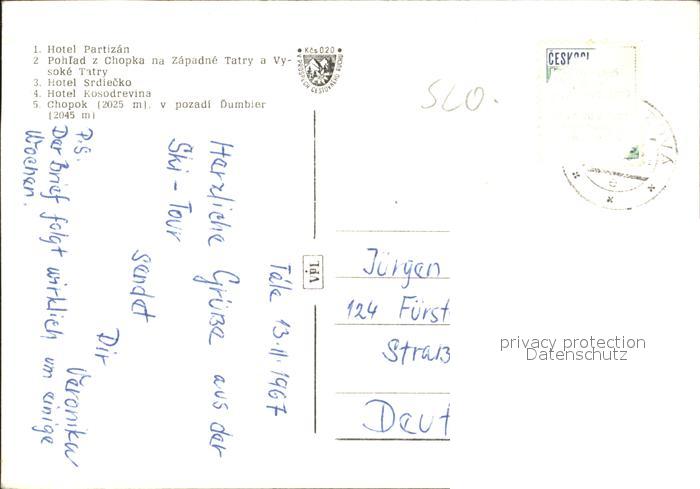 1. Hotel Partizán
2 Pohľad z Chopka na Západné Tatry a Vy-
soké Tatry
3. Hotel Srdiečko
4. Hotel Kosodrevina
5. Chopok (2025 m), v pozadí Ďumbier
(2045 m)
Kčs 020
SLO.
ČESKOS
Tále 13.II.1967
Herzliche Grüße aus der
Ski-Tour
sendet
Dir
Veronika
P.S.
Der Brief folgt wirklich um einige
Wochen.
VďT
Jürgen
124 Fürst
Straß
Deut
privacy protection
Datenschutz